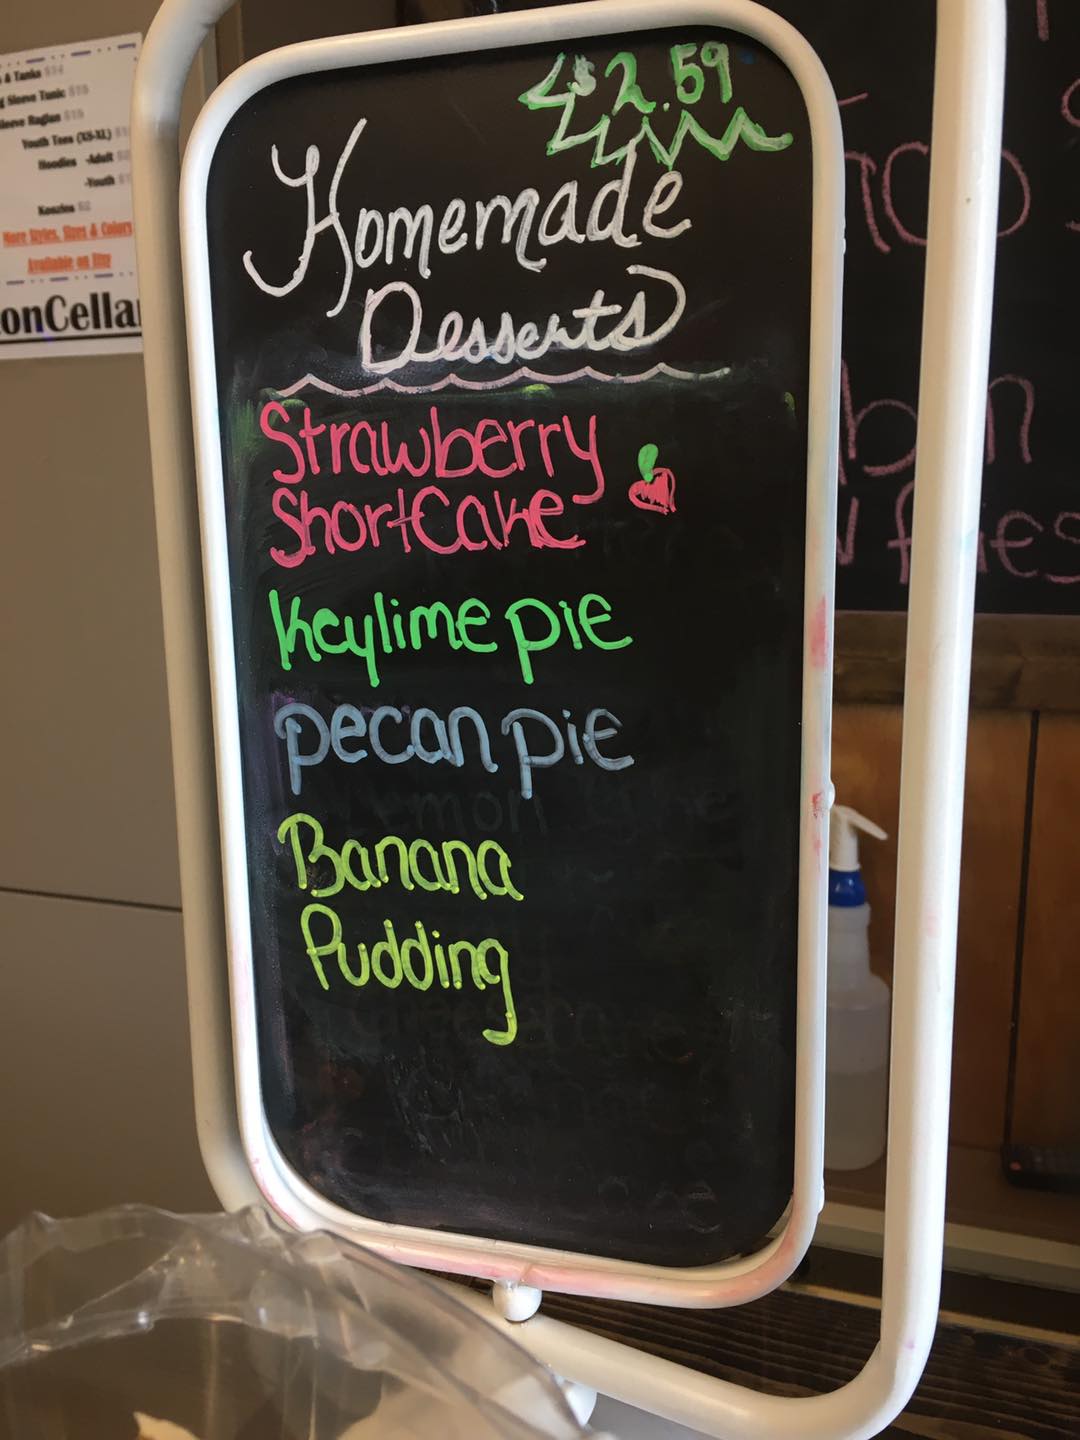 & Tanks $14
Sleeve Tunic
Sleeve Raglan
Youth Tees (XS-XL)
Hoodies -Adult
-Youth
Koozies
More Styles, Sizes & Colors
Available on Etsy
onCella
$2.59
Homemade
Desserts
Strawberry
ShortCake
Keylime pie
pecan pie
Banana
Pudding
fries